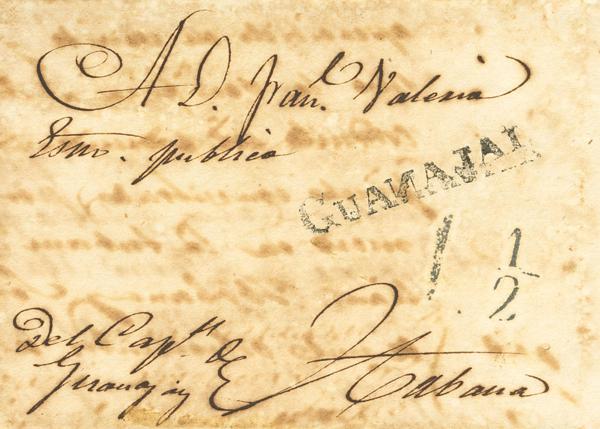 A D. Juan.l Valeria
Esno. publico
GUANAJAI
1. 1/2
Del Cap.n de
Guanajay
Habana